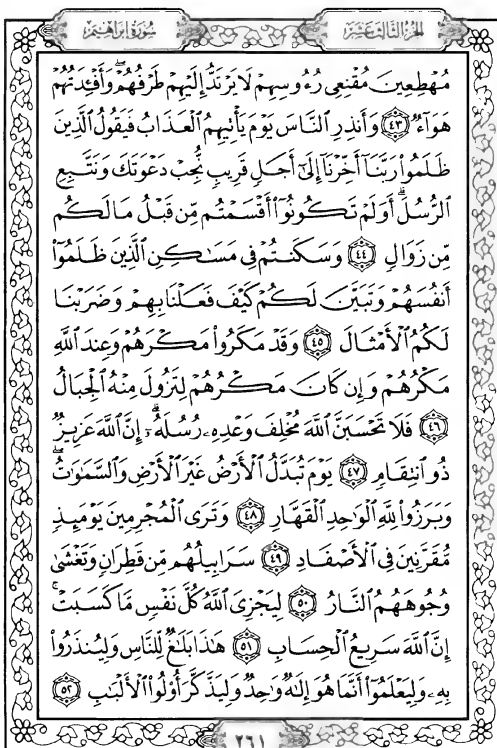 سُورَةُ إِبْرَاهِيمَ
الجُزْءُ الثَّالِثَ عَشَرَ
مُهْطِعِينَ مُقْنِعِي رُءُوسِهِمْ لَا يَرْتَدُّ إِلَيْهِمْ طَرْفُهُمْ ۖ وَأَفْـِٔدَتُهُمْ
هَوَآءٌ ۝٤٣ وَأَنذِرِ ٱلنَّاسَ يَوْمَ يَأْتِيهِمُ ٱلْعَذَابُ فَيَقُولُ ٱلَّذِينَ
ظَلَمُوا۟ رَبَّنَآ أَخِّرْنَآ إِلَىٰٓ أَجَلٍ قَرِيبٍ نُّجِبْ دَعْوَتَكَ وَنَتَّبِعِ
ٱلرُّسُلَ ۗ أَوَلَمْ تَكُونُوٓا۟ أَقْسَمْتُم مِّن قَبْلُ مَا لَكُم
مِّن زَوَالٍ ۝٤٤ وَسَكَنتُمْ فِى مَسَـٰكِنِ ٱلَّذِينَ ظَلَمُوٓا۟
أَنفُسَهُمْ وَتَبَيَّنَ لَكُمْ كَيْفَ فَعَلْنَا بِهِمْ وَضَرَبْنَا
لَكُمُ ٱلْأَمْثَالَ ۝٤٥ وَقَدْ مَكَرُوا۟ مَكْرَهُمْ وَعِندَ ٱللَّهِ
مَكْرُهُمْ وَإِن كَانَ مَكْرُهُمْ لِتَزُولَ مِنْهُ ٱلْجِبَالُ
۝٤٦ فَلَا تَحْسَبَنَّ ٱللَّهَ مُخْلِفَ وَعْدِهِۦ رُسُلَهُۥٓ ۗ إِنَّ ٱللَّهَ عَزِيزٌ
ذُو ٱنتِقَامٍ ۝٤٧ يَوْمَ تُبَدَّلُ ٱلْأَرْضُ غَيْرَ ٱلْأَرْضِ وَٱلسَّمَـٰوَٰتُ ۖ
وَبَرَزُوا۟ لِلَّهِ ٱلْوَٰحِدِ ٱلْقَهَّارِ ۝٤٨ وَتَرَى ٱلْمُجْرِمِينَ يَوْمَئِذٍ
مُّقَرَّنِينَ فِى ٱلْأَصْفَادِ ۝٤٩ سَرَابِيلُهُم مِّن قَطِرَانٍ وَتَغْشَىٰ
وُجُوهَهُمُ ٱلنَّارُ ۝٥٠ لِيَجْزِىَ ٱللَّهُ كُلَّ نَفْسٍ مَّا كَسَبَتْ ۚ
إِنَّ ٱللَّهَ سَرِيعُ ٱلْحِسَابِ ۝٥١ هَـٰذَا بَلَـٰغٌ لِّلنَّاسِ وَلِيُنذَرُوا۟
بِهِۦ وَلِيَعْلَمُوٓا۟ أَنَّمَا هُوَ إِلَـٰهٌ وَٰحِدٌ وَلِيَذَّكَّرَ أُو۟لُوا۟ ٱلْأَلْبَـٰبِ ۝٥٢
٢٦١